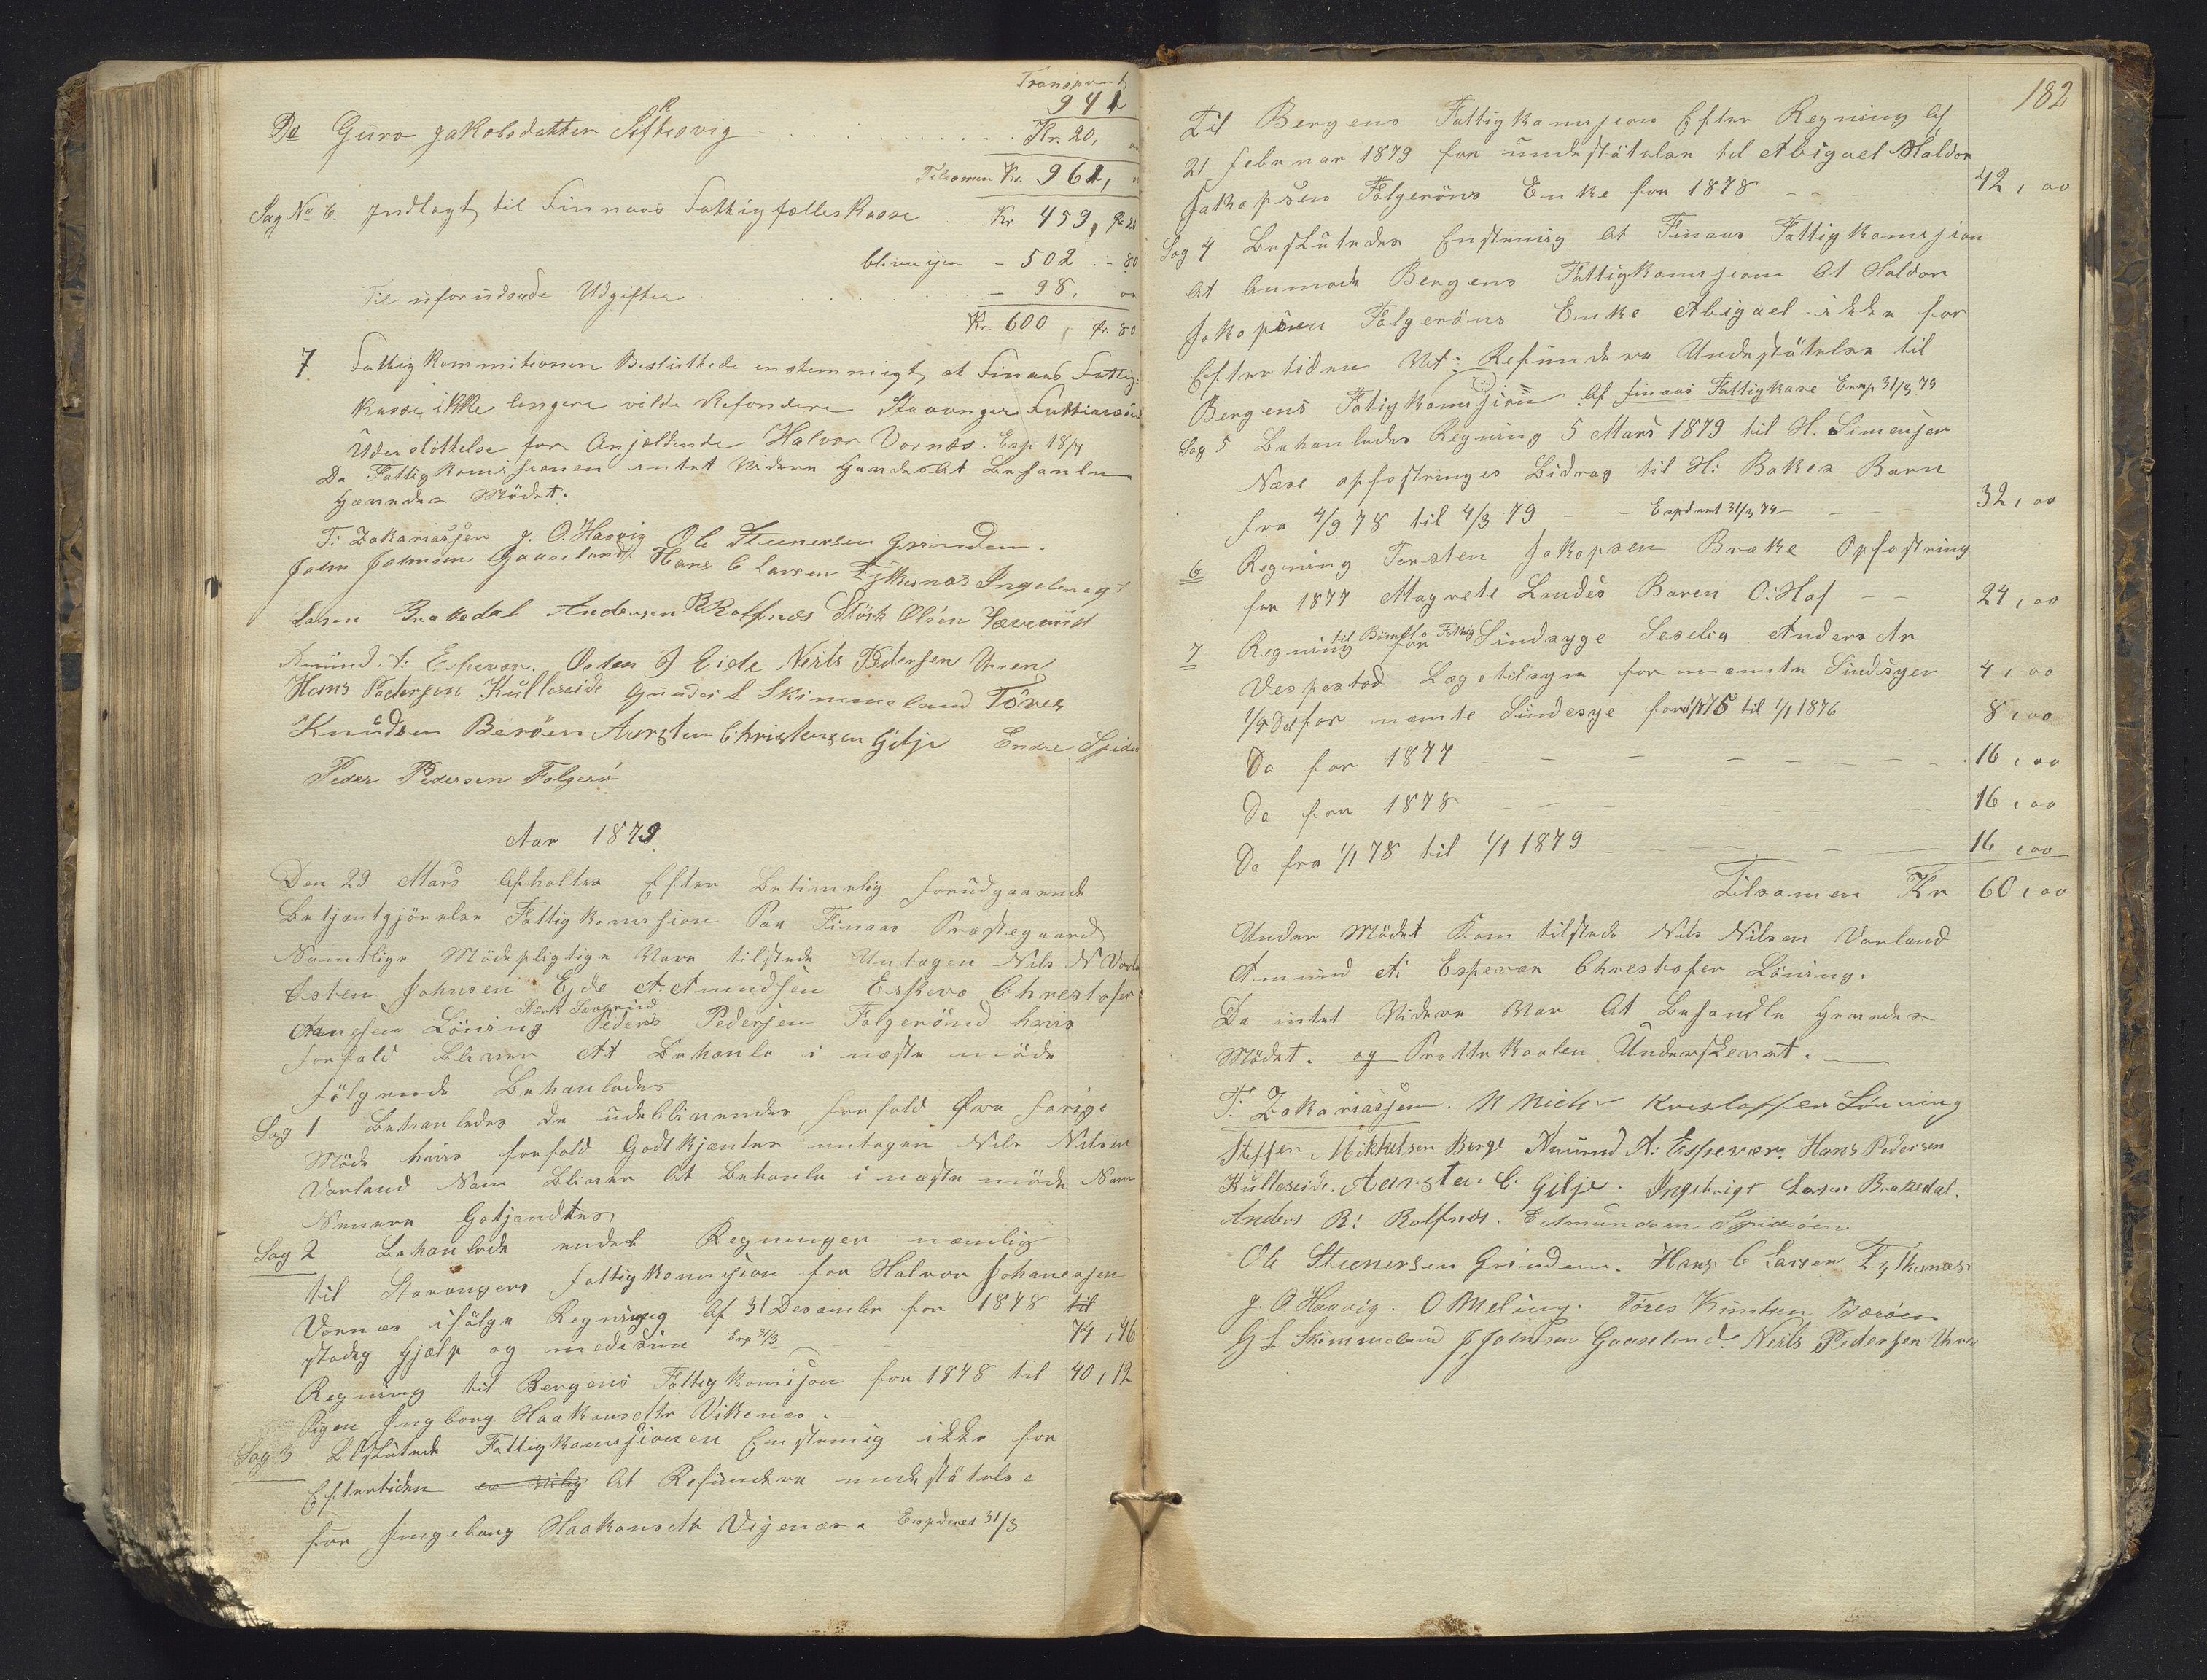 Transport
941
Do Guro Jakobsdatter Siftesvig . . . . . Kr. 20,
Tilsamen Kr. 961,
Sag No 6. Indlagt til Finnaas Fattigfælleskasse Kr. 459,
bliver igjen - 502 . - 80
Til uforudsede Udgifter . . . . . - 98,
Kr. 600, Ør. 80
7 Fattigkommitionen Besluttede enstemmigt at Finaas Fattig-
kasse ikke lengere vilde Refondere Stavanger
Understöttelse for Anjældende Halvor Vornæs. Exp. 18/7
Da Fattigkomisjonen intet videre Hævdes At Behanle
Hævedes Mödet.
T: Zakariasjen J. O. Haavig Ole Steenersen Grinden.
John Johnsen Gaaseland. Hans C Larsen Eskenæs Ingebrigt
Larsen Brakedal Andersen R Rolfsnæs Störk Olsen Sæverüd
Amund. A: Espevær. Osten J Eide Neils Pedersen Uren
Hans Pedersen Kulleseide Gunder L Skimmeland Töres
Knudsen Beröen Aursten Christensen Gilje Endre Spids
Peder Pedersen Folgerö
Aar 1879.
Den 29 Mars Afholtes Efter Betimelig forudgaaende
Betjentgjörelse Fattigkomisjion Paa Finaas Præstegaard
Samtlige Mödepligtige Vare tilstede Untagen Nils N Vorla
Osten Johnsen Ejde A. Amudsen Eskeva Chrestofer
Störk Sæverüd
Aanesen Löning Peders Pedersen Folgerönd hvis
forfald Bliver At Behanle i næste möde
fölgende Behanledes
Sag 1 Behanledes de udeblivendes forfald Fra forige
Möde hvis forfald Godtkjentes untagen Nils Nilsen
Vorland Som Bliver At Behanle i næste möde Som
Senere Gotjendtes
Sag 2 Behanlede endel Regninger nemlig
til Stavangers Fattigkomisjion for Halvor Johanesjen
Vornæs ifölge Regning Af 31 Desember for 1878 til
stadig Hjelp og medisin Exp 31/3 — 74,46
Regning til Bergens Fattigkomisjon for 1878 til 40,12
Pigen Ingborg Haakonsdtr Vikenes.
Sag 3 Beslutede Fattigkomisjionen Enstemig ikke for
Eftertiden er vilig At Refundere understötelse
for Ingeborg Haakonsdtr Vigenæs. Expderet 31/3
182
Til Bergens Fattigkomisjion Efter Regning Af
21 Februar 1879 for understötelse til Abigael Haldor
Jakopsen Folgeröns Enke for 1878 - - 42,00
Sag 4 Beslutedes Enstemig At Finaas Fattigkomisjion
At Anmode Bergens Fattigkomisjion At Haldor
Jakopsen Folgeröns Enke Abigael ikke for
Eftertiden Vil: Refundere Understötelse til
Bergens Fatigkomisjion Af Finaas Fattigkase Exp. 31/3 79
Sag 5 Behanledes Regning 5 Mars 1879 til H. Simensen
Næse opfostringes Bidrag til H: Bakes Barn
fra 4/9 78 til 4/3 79 - - Expdert 31/3 79 - - 32,00
6 Regning Torsten Jakopsen Brake Opfostring
for 1877 Magrete Landes Baren O: Haf - - 24,00
til Bömlo Fattig
7 Regning for Sindsyge Seselia Anders Dr
Vespestad Lægetilsyn for nævnte Sindsyger 4,00
1/4 Del for nemte Sindesyge for 1/1 1875 til 1/1 1876 8,00
Do for 1877 — — — 16,00
Do for 1878 — — — 16,00
Do fra 1/1 78 til 1/1 1879 — — — 16,00
Tilsamen Kr 60,00
Under Mödet Kom tilstede Nils Nilsen Vorland
Amund A: Espevær Chrestofer Löning.
Da intet videre Var At Behandle Hevedes
Mödet. og Protte Koolen Underskrevet.
T: Zakariasjen. N Niels Kristoffer Lönning
Steffen Mikkelsen Berge Amund A: Espevær. Hans Pedersen
Kulleseide. Aarsten C. Gilje. Ingebrigt Larsen Brakedal.
Anders R: Rolfsnes. E Amundsen Spidsöen
Ole Steenersen Grinden. Hans C Larsen Eskenæs
J. O. Haavig. O Meling. Töres Knutsen Beröen
G L Skimmeland J Johnsen Gaaseland. Neils Pedersen Uren